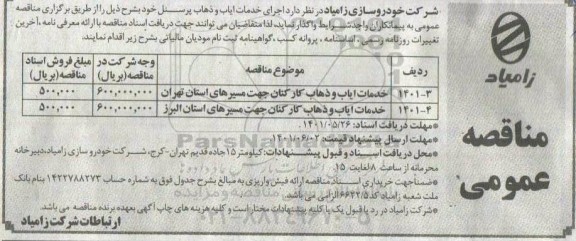 زامیاد
مناقصه
عمومی
شرکت خودروسازی زامیاد در نظر دارد اجرای خدمات ایاب و ذهاب پرسنل خود بشرح ذیل را از طریق برگزاری مناقصه
عمومی به پیمانکاران واجد شرایط واگذار نماید، لذا متقاضیان می توانند جهت دریافت اسناد مناقصه با ارائه معرفی نامه، آخرین
تغییرات روزنامه رسمی، اساسنامه، پروانه کسب، گواهینامه ثبت نام مودیان مالیاتی بشرح زیر اقدام نمایند.
ردیف موضوع مناقصه وجه شرکت در مناقصه (بریال) مبلغ فروش اسناد مناقصه (بریال)
۱۴۰۱-۳ خدمات ایاب و ذهاب کارکنان جهت مسیرهای استان تهران ۶۰۰,۰۰۰,۰۰۰ ۵۰۰,۰۰۰
۱۴۰۱-۴ خدمات ایاب و ذهاب کارکنان جهت مسیرهای استان البرز ۶۰۰,۰۰۰,۰۰۰ ۵۰۰,۰۰۰
* مهلت دریافت اسناد: ۱۴۰۱/۰۵/۲۶
* مهلت ارسال پیشنهاد قیمت: ۱۴۰۱/۰۶/۰۲
* محل دریافت اسناد و قبول پیشنهادات: کیلومتر ۱۵ جاده قدیم تهران-کرج، شرکت خودروسازی زامیاد، دبیرخانه
محرمانه از ساعت ۸ لغایت ۱۵
* ضمنا جهت خریداری اسناد مناقصه ارائه فیش واریزی به مبالغ بشرح جدول فوق به شماره حساب ۱۴۲۲۷۸۸۲۷۳ بنام بانک
ملت شعبه زامیاد کد ۶۶۳۲/۵ الزامی می باشد.
* شرکت زامیاد در رد یا قبول یک یا کلیه پیشنهادات مختار است و کلیه هزینه های چاپ آگهی بعهده برنده مناقصه می باشد.
ارتباطات شرکت زامیاد